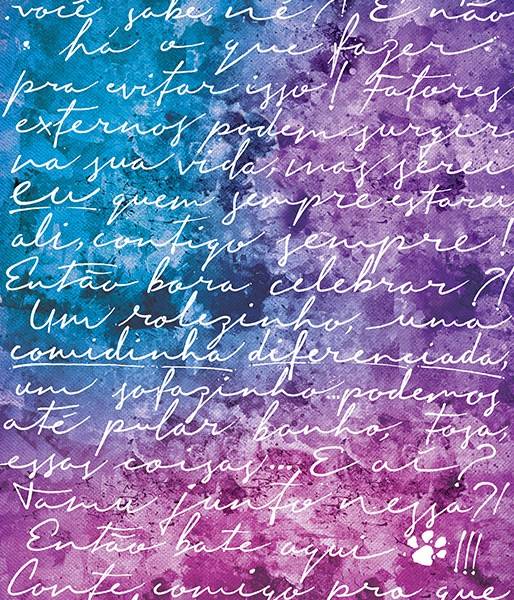 você sabe né?! E não
há o que fazer
pra evitar isso! Fatores
externos podem surgir
na sua vida, mas serei
eu quem sempre estarei
ali, contigo sempre!
Então bora celebrar?!
Um rolezinho, uma
comidinha diferenciada,
um sofazinho...podemos
até pular banho, tosa,
essas coisas... E aí?
Tamu junto nessa?!
Então bate aqui !!!
Conte comigo pro que